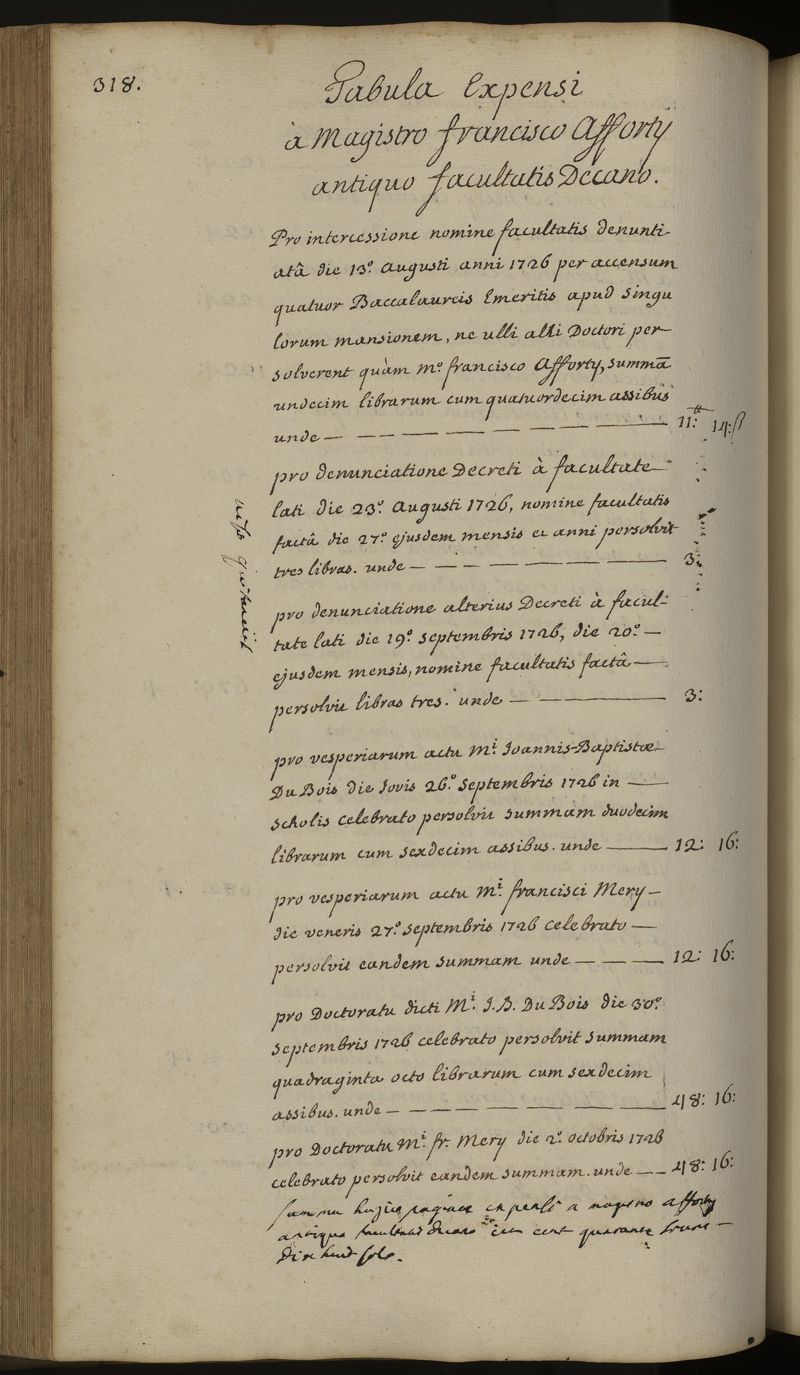 318.
Tabula Expensi
à Magistro francisco Afforty
antiquo facultatis Decano.
Pro intercessione nomine facultatis denunti-
atâ die 13.º Augusti anni 1726 per accensum
quatuor Baccalaureis Emeritis apud singu
lorum mansionem, ne ulli alii Doctori per-
solverent quàm M.º francisco Afforty, summā
undecim librarum cum quatuordecim assibus
unde — 11:tt 14:ß
pro denunciatione Decreti à facultate
lati die 23.º Augusti 1726, nomine facultatis
factâ die 27.º ejusdem mensis et anni persolvit
tres libras. unde — 3:
pro denunciatione alterius Decreti à facul-
tate lati die 19.º septembris 1726, die 20.º —
ejusdem mensis, nomine facultatis factâ —
persolvit libras tres. unde — 3:
pro vesperiarum actu M.i Joannis-Baptistæ
Du Bois die Jovis 26.º septembris 1726 in —
scholis celebrato persolvit summam duodecim
librarum cum sexdecim assibus. unde — 12: 16:
pro vesperiarum actu M.i francisci Mery —
die veneris 27.º septembris 1726 celebrato —
persolvit eandem summam unde — 12: 16:
pro Doctoratu dicti M.i J.B. Du Bois die 30.º
septembris 1726 celebrato persolvit summam
quadraginta octo librarum cum sexdecim
assibus. unde — 48: 16:
pro Doctoratu M.i fr. Mery die 2.º octobris 1726
celebrato persolvit eandem summam. unde — 48: 16:
summa hujus paginae expensi a magistro afforty
antiquo facultatis decano cent quarante
dix huit sols.